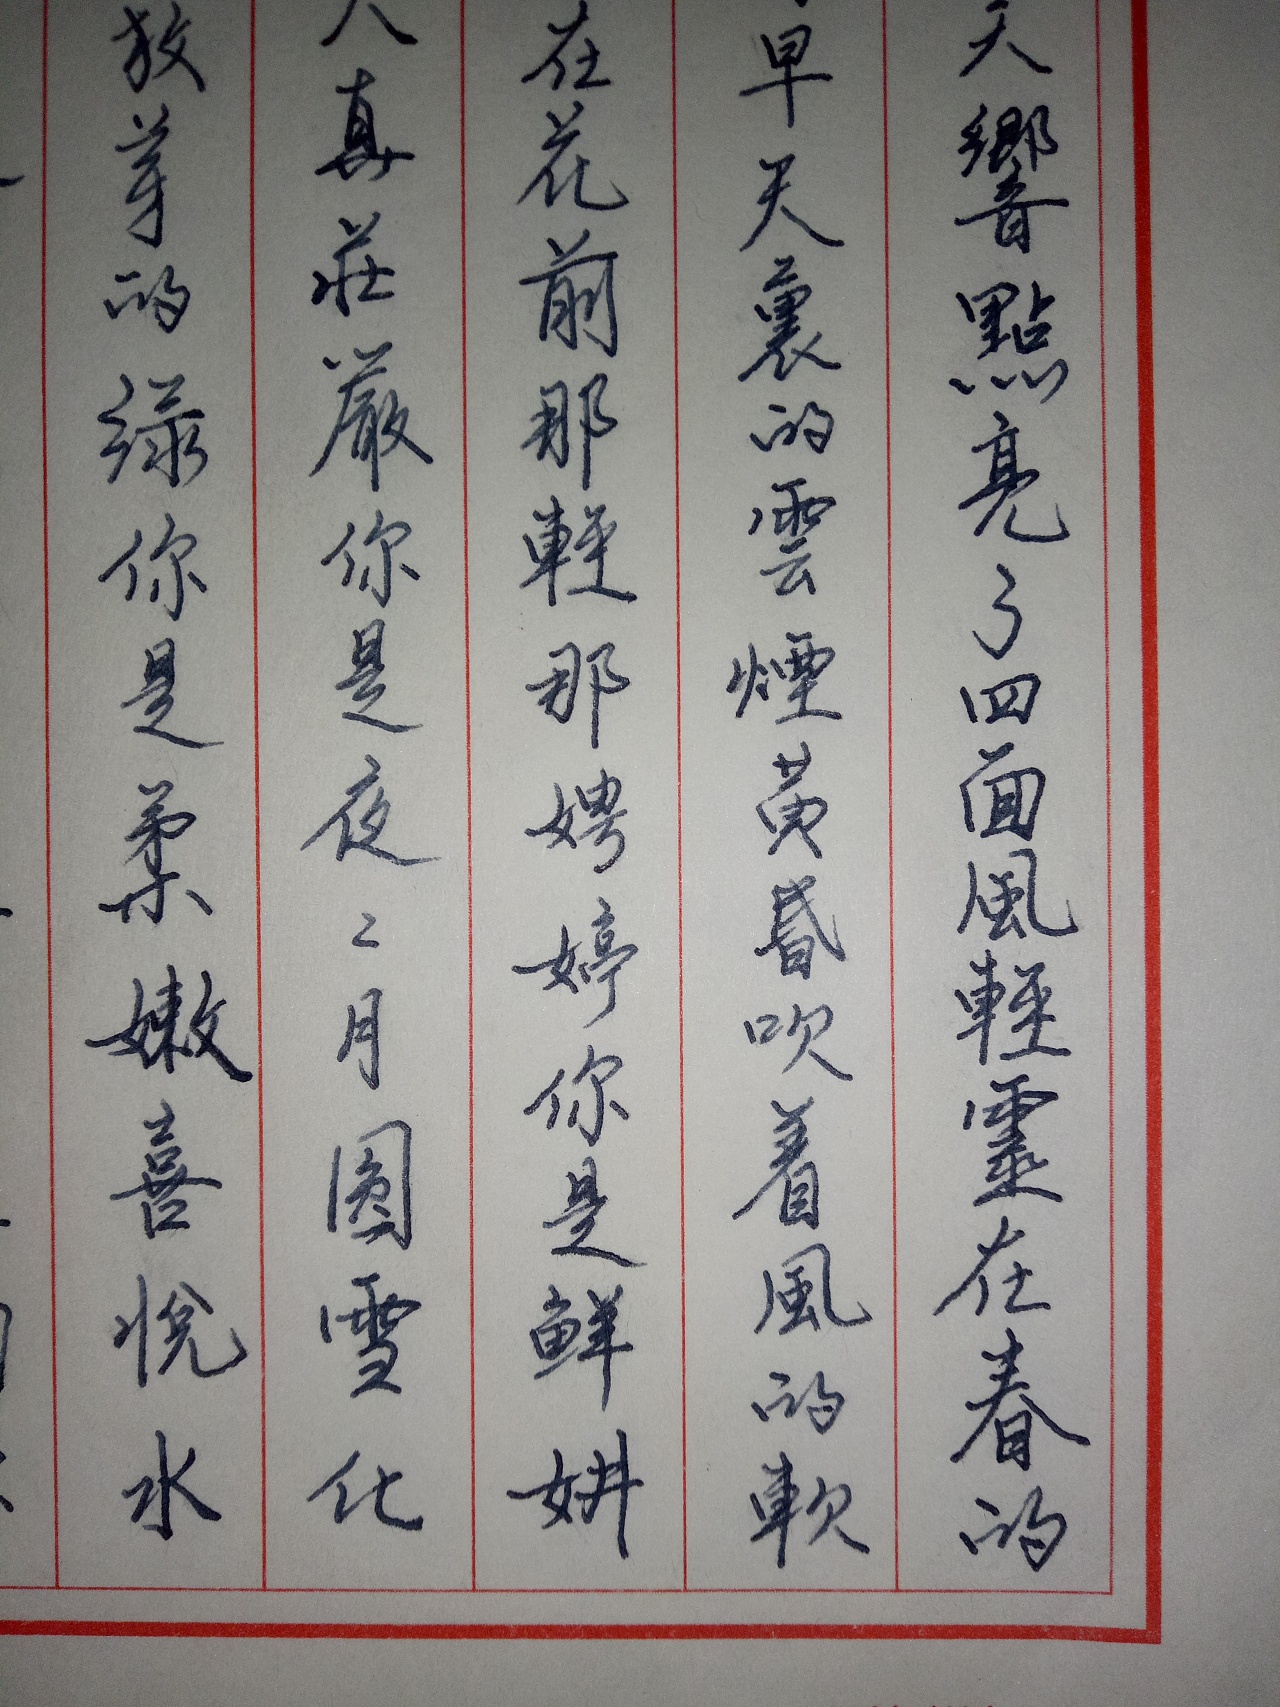 天響點亮了四面風輕靈在春的
早天裏的雲煙黃昏吹着風的軟
在花前那輕那娉婷你是鮮妍
真莊嚴你是夜〻月圓雪化
放芽的绿你是柔嫩喜悅水